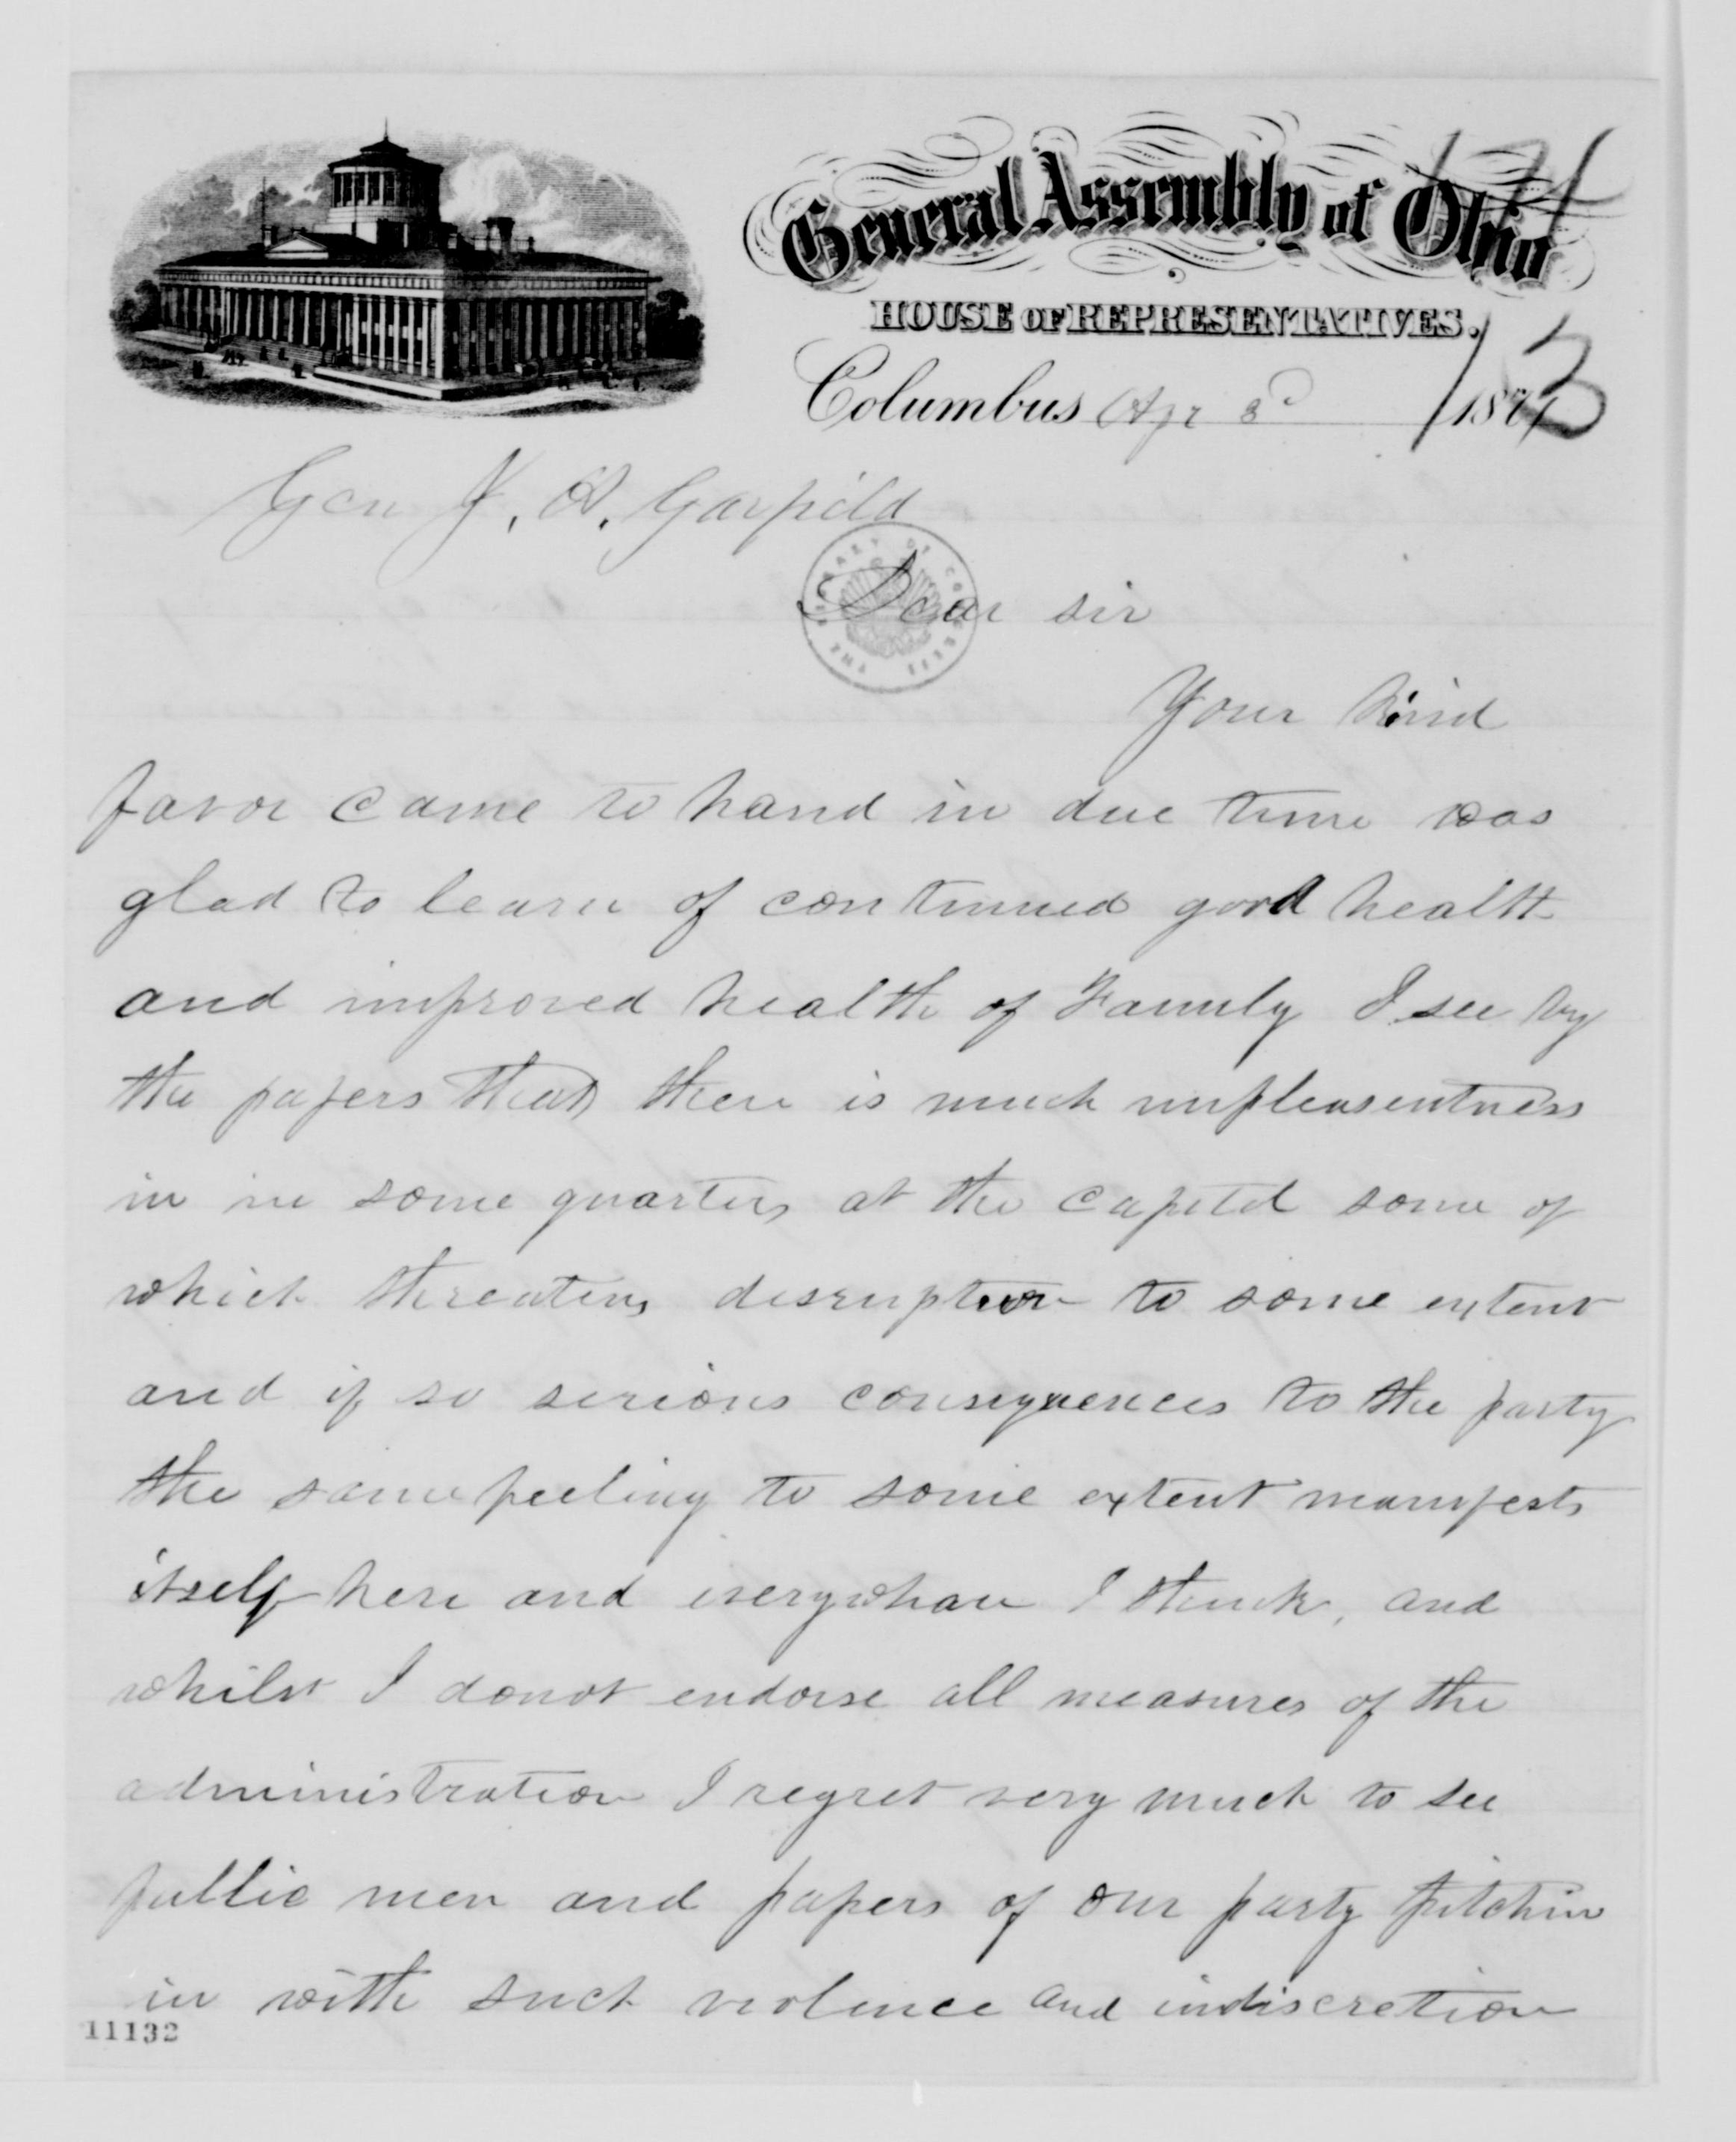 General Assembly of Ohio
HOUSE OF REPRESENTATIVES.
Columbus Apr 3d 1871
Gen J. A. Garfield
Dear sir
THE LIBRARY OF CONGRESS
Your kind
favor came to hand in due time was
glad to learn of continued good health
and improved health of Family I see by
the papers that there is much unpleasentness
in in some quarters at the capitol some of
which threatens disruption to some extent
and if so serious consequences to the party
the same feeling to some extent manifests
itself here and everywhare I think, and
whilst I donot endorse all measures of the
administration I regret very much to see
public men and papers of our party pitchin
in with such violence and indiscretion
11132